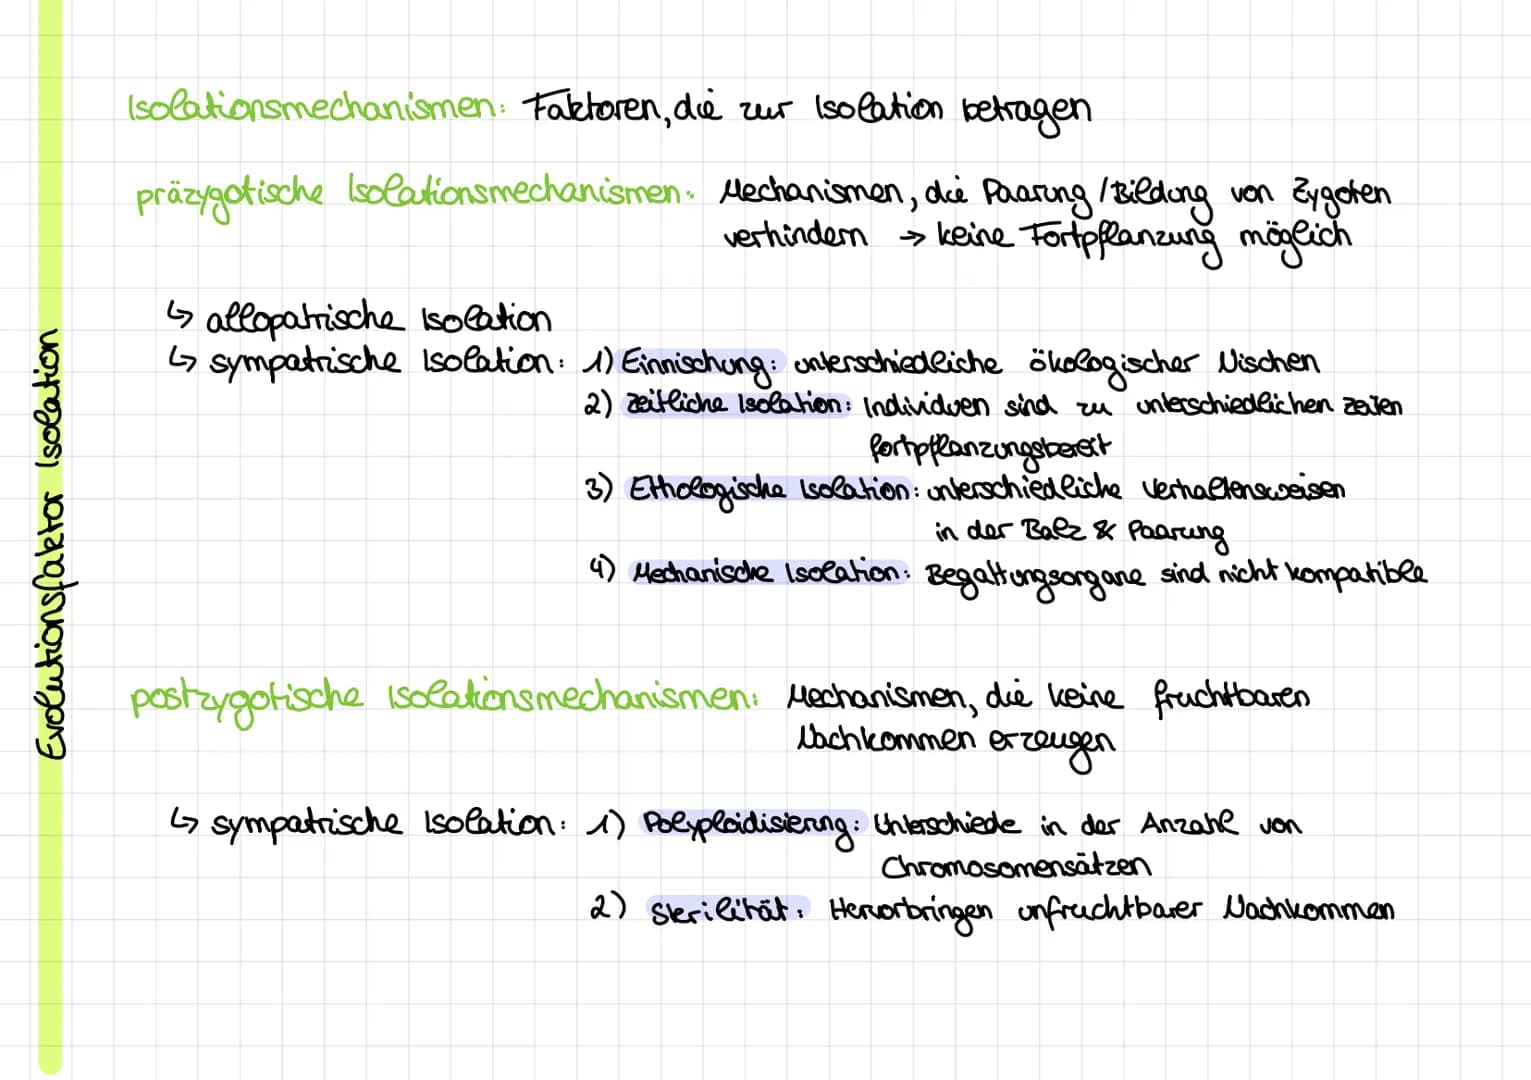 Evolutionsfaktor Isolation
Isolationsmechanismen: Faktoren, die zur Isolation betragen
präzygotische Isolationsmechanismen: Mechanismen, die Paarung / Bildung von Zygoten
verhindern → keine Fortpflanzung möglich
↳ allopatrische Isolation
↳ sympatrische Isolation: 1) Einnischung: unterschiedliche ökologischer Nischen
2) zeitliche Isolation: Individuen sind zu unterschiedlichen Zeiten
fortpflanzungsbereit
3) Ethologische Isolation: unterschiedliche Verhaltensweisen
in der Balz & Paarung
4) Mechanische Isolation: Begattungsorgane sind nicht kompatible
postzygotische Isolationsmechanismen: Mechanismen, die keine fruchtbaren
Nachkommen erzeugen
↳ sympatrische Isolation: 1) Polyploidisierung: Unterschiede in der Anzahl von
Chromosomensätzen
2) Sterilität: Hervorbringen unfruchtbarer Nachkommen